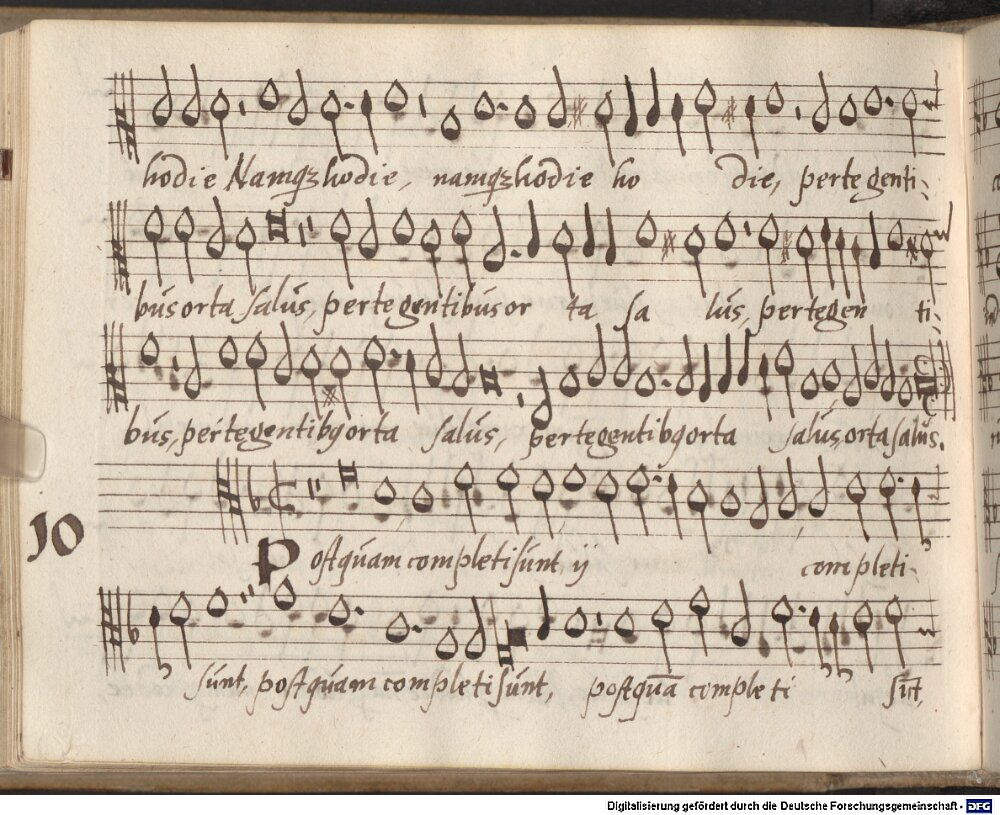 hodie Namqꝫ hodie, namqꝫ hodie ho die, per te genti:
bus orta salus, per te gentibus or ta sa lus, per te gen ti:
bus, per te gentibꝫ orta salus, per te gentibꝫ orta salus, orta salus.
10
Postquam completi sunt ij completi:
sunt, postquam completi sunt, postquā completi sūt,
Digitalisierung gefördert durch die Deutsche Forschungsgemeinschaft - DFG